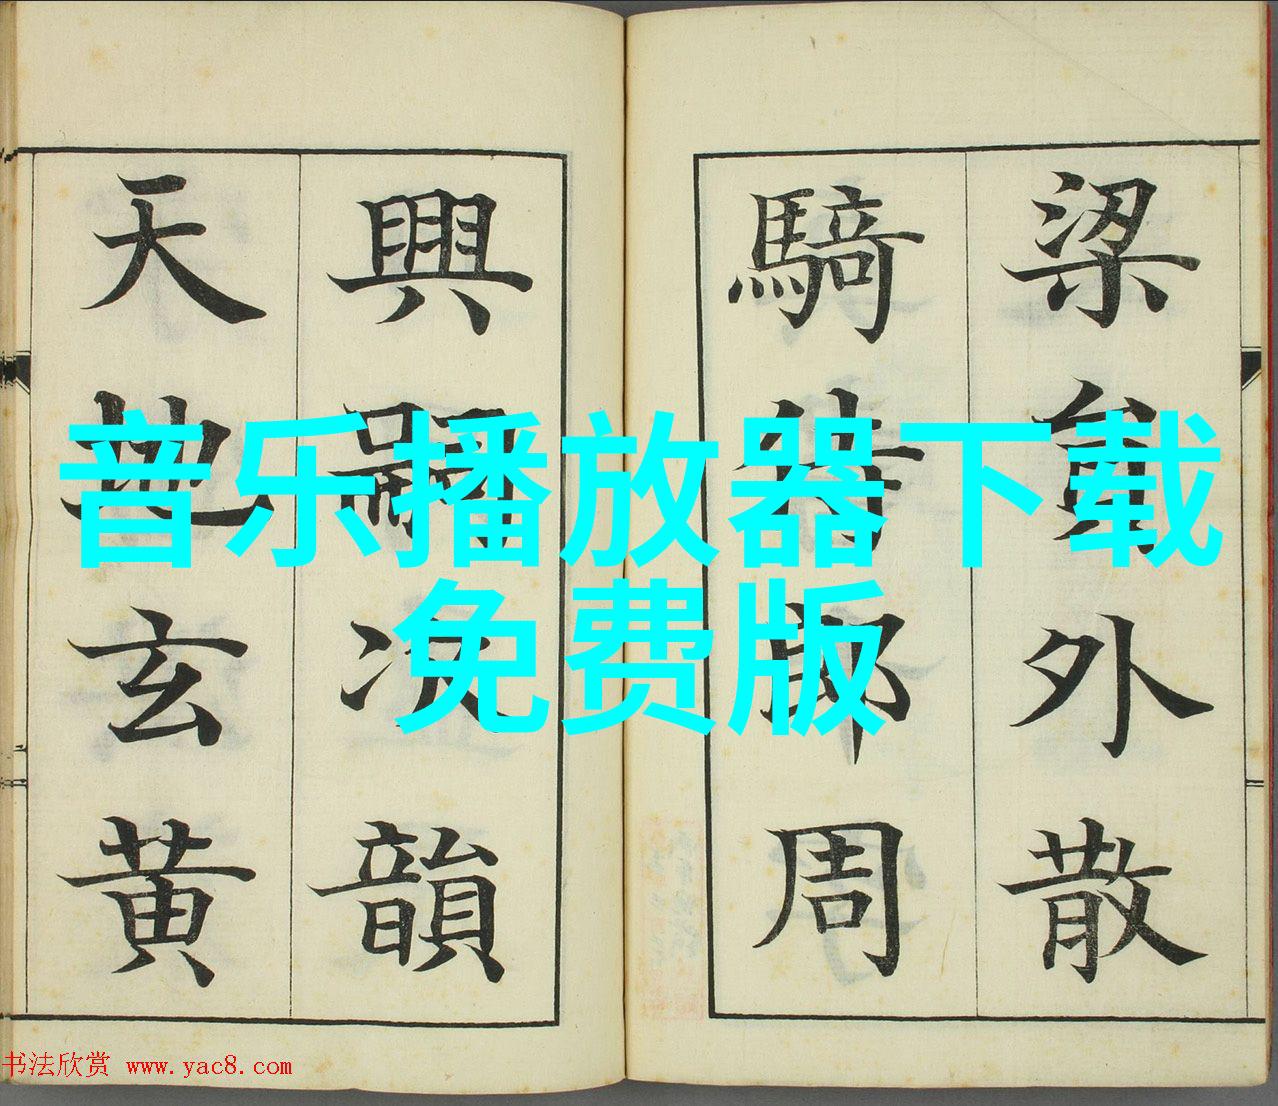 梁員外散
騎侍郎周
興嗣次韻
天地玄黄
音乐播放器下载
免费版
书法欣赏 www.yac8.com